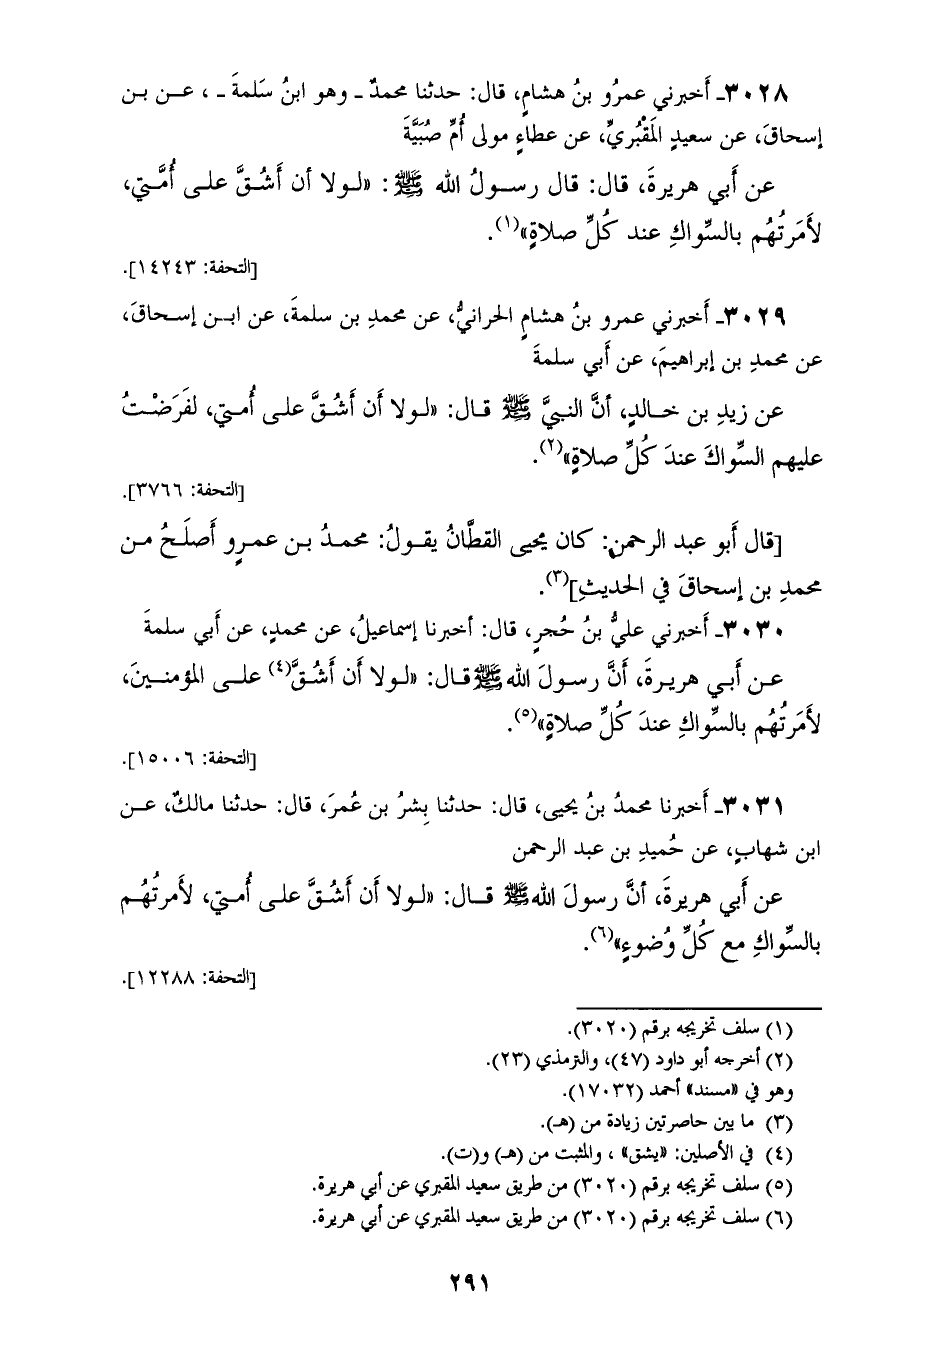 ٣٠٢٨ـ أَخبرني عمرُو بنُ هشامٍ، قال: حدثنا محمدٌ ـ وهو ابنُ سَلمةَ ـ ، عـن بن
إسحاقَ، عن سعيدٍ المَقْبُريِّ، عن عطاءٍ مولى أُمِّ صُبَيَّةَ
عن أَبي هريرةَ، قال: قال رسـولُ الله ﷺ : «لـولا أن أَشُـقَّ علـى أُمَّـتي،
لأَمَرتُهُم بالسِّواكِ عند كُلِّ صلاةٍ»(١).
[التحفة: ١٤٢٤٣].
٣٠٢٩ـ أَخبرني عمرو بنُ هشامٍ الحرانيُّ، عن محمدِ بن سلمةَ، عن ابـن إسـحاقَ،
عن محمدِ بن إبراهيمَ، عن أَبي سلمةَ
عن زيدِ بن خـالدٍ، أنَّ النبيَّ ﷺ قـال: «لـولا أَن أَشُـقَّ علـى أُمـتي، لفَرَضْـتُ
عليهم السِّواكَ عندَ كُلِّ صلاةٍ»(٢).
[التحفة: ٣٧٦٦].
[قال أَبو عبد الرحمن: كان يحيى القطَّانُ يقـولُ: محمـدُ بـن عمـرٍو أَصلَـحُ مـن
محمدِ بن إسحاقَ في الحديثِ](٣).
٣٠٣٠ـ أَخبرني عليُّ بنُ حُجرٍ، قال: أخبرنا إسماعيلُ، عن محمدٍ، عن أَبي سلمةَ
عـن أَبـي هريـرةَ، أَنَّ رسـولَ الله ﷺ قـال: «لـولا أَن أَشُـقَّ(٤) علـى المؤمنـينَ،
لأَمَرتُهُم بالسِّواكِ عندَ كُلِّ صلاةٍ»(٥).
[التحفة: ١٥٠٠٦].
٣٠٣١ـ أَخبرنا محمدُ بنُ يحيى، قال: حدثنا بِشرُ بن عُمرَ، قال: حدثنا مالكٌ، عـن
ابن شهابٍ، عن حُميدِ بن عبد الرحمن
عن أَبي هريرةَ، أنَّ رسولَ الله ﷺ قـال: «لـولا أَن أَشُـقَّ علـى أُمـتي، لأَمرتُهُـم
بالسِّواكِ مع كُلِّ وُضوءٍ»(٦).
[التحفة: ١٢٢٨٨].
(١) سلف تخريجه برقم (٣٠٢٠).
(٢) أخرجه أبو داود (٤٧)، والترمذي (٢٣).
وهو في «مسند» أحمد (١٧٠٣٢).
(٣) ما بين حاصرتين زيادة من (هـ).
(٤) في الأصلين: «يشق» ، والمثبت من (هـ) و(ت).
(٥) سلف تخريجه برقم (٣٠٢٠) من طريق سعيد المقبري عن أبي هريرة.
(٦) سلف تخريجه برقم (٣٠٢٠) من طريق سعيد المقبري عن أبي هريرة.
٢٩١